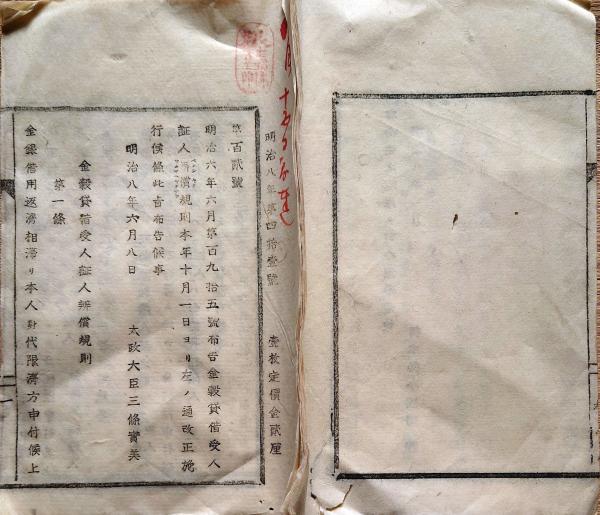 明治八年第四拾壹號　壹枚定價金貳厘
第百貳號
明治六年六月第百九拾五號布告金穀貸借受人
証人辨償規則本年十月一日ヨリ左ノ通改正施
行候條此旨布告候事
明治八年六月八日　太政大臣三條實美
金穀貸借受人証人辨償規則
第一條
金銀借用返濟相滯リ本人ニ對代限濟方申付候上